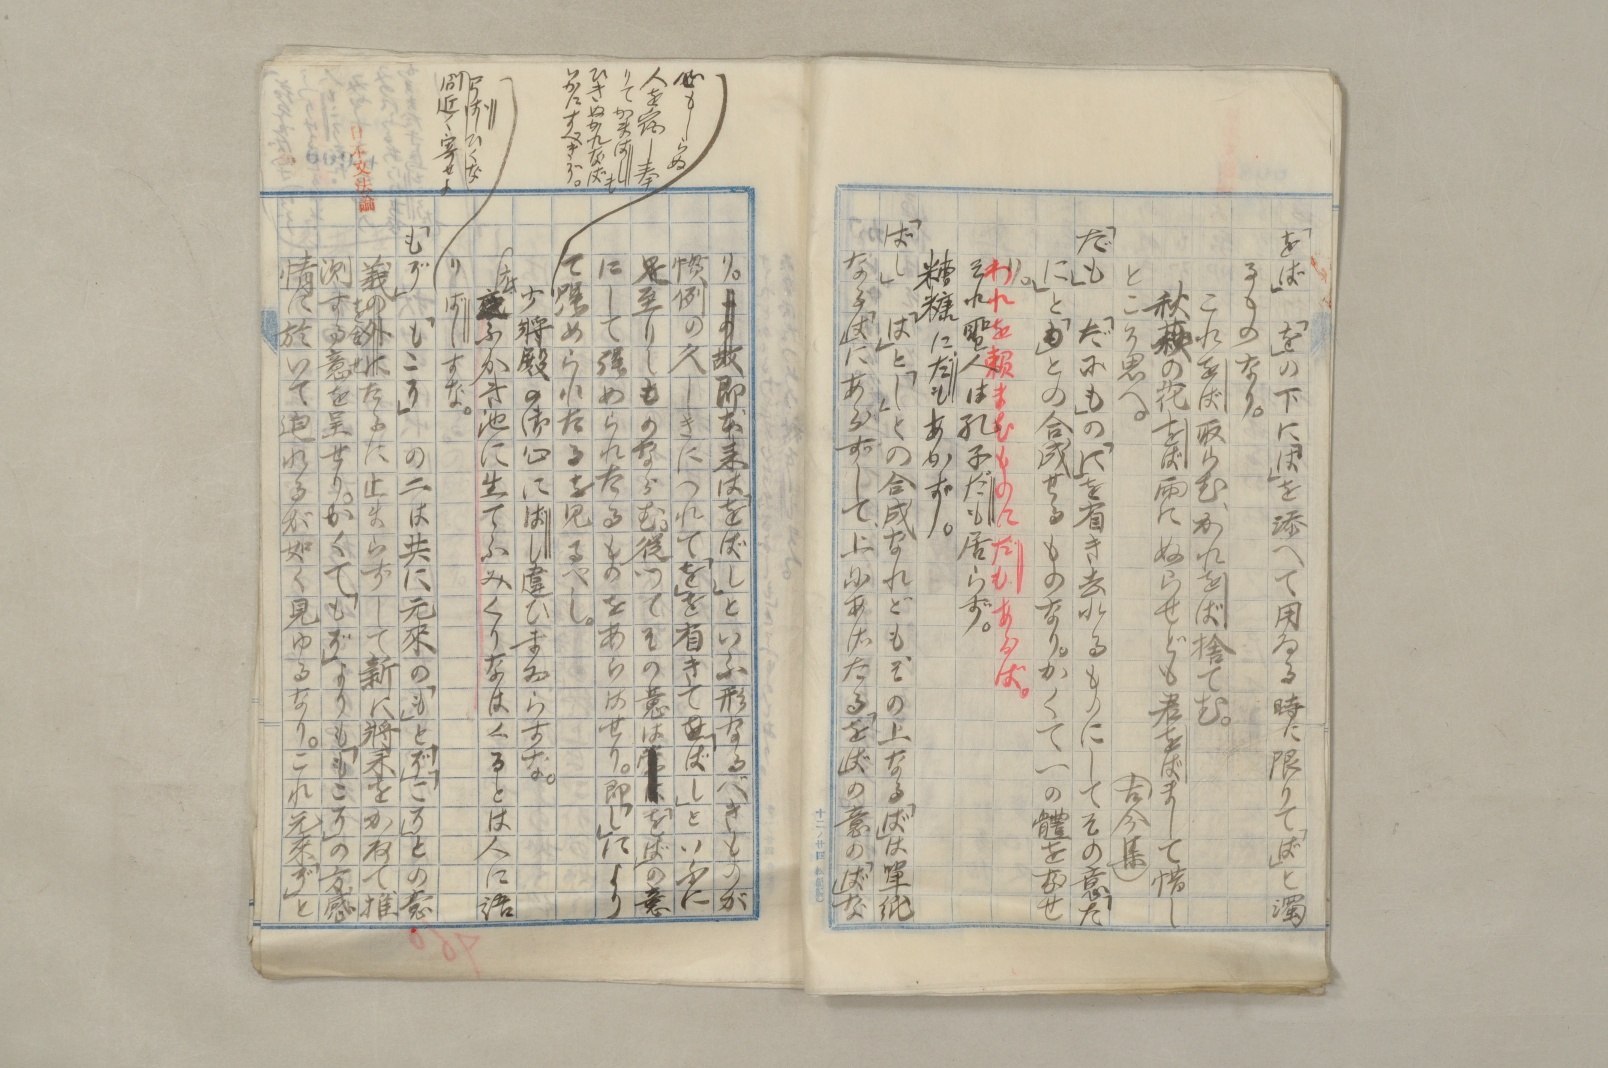 「をば」　「を」の下に「は」を添へて用ゐる時に限りて「ば」と濁
るものなり。
これをば取らむ、かれをば捨てむ。
秋萩の花をば雨にぬらせども君をばまして惜し
とこそ思へ。
（古今集）
「だも」　「だにも」の「に」を省き去れるものにしてその意「た
に」と「も」との合成せるものなり。かくて一の體をなせ
り。
われを頼まむものにだもあらば。
それ聖人は孔子だも居らず。
糟糠にだもあかず。
「ばし」　「は」と「し」との合成なれどもその上なる「ば」は単純
なる「は」にあらずして、上にあげたる「をば」の意の「ば」な
り。故即本来は「をばし」といふ形なるべきものが
慣例の久しきにつれて「を」を省きて「ばし」といふに
至りしものならむ。従つてその意は「をば」の意
にして強められたるものをあらはせり。即「し」により
て強められたるを見るべし。
必もしらぬ
人を
りてかまばしも
ひきぬかれなば
いかにすべきぞ。
少將殿の御心にばし違ひまゐらすな。
ふかき池に生てふみくりなはくるとは人に語
りばしすな。
間近く寄せよ
「もぞ」「もこそ」の二は共に元來の「も」と「ぞ」「こそ」との意
義の外にたゞに止まらずして新に將来をかねて推
測する意を呈せり。かくて「もぞ」よりも「もこそ」の方感
情に於いて迫れるが如く見ゆるなり。これ元来「ぞ」と
日本文法論